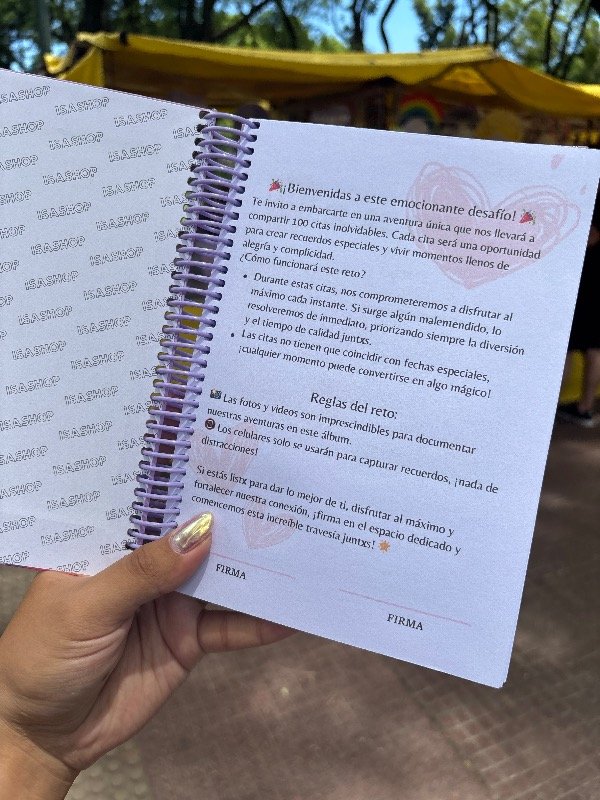 ISASHOP ISASHOP ISASHOP
ISASHOP ISASHOP ISASHOP
ISASHOP ISASHOP ISASHOP
ISASHOP ISASHOP ISASHOP
ISASHOP ISASHOP ISASHOP
ISASHOP ISASHOP ISASHOP
ISASHOP ISASHOP ISASHOP
ISASHOP ISASHOP ISASHOP
ISASHOP ISASHOP
ISASHOP ISASHOP
🎉¡Bienvenidas a este emocionante desafío! 🎉
Te invito a embarcarte en una aventura única que nos llevará a
compartir 100 citas inolvidables. Cada cita será una oportunidad
para crear recuerdos especiales y vivir momentos llenos de
alegría y complicidad.
¿Cómo funcionará este reto?
• Durante estas citas, nos comprometeremos a disfrutar al
máximo cada instante. Si surge algún malentendido, lo
resolveremos de inmediato, priorizando siempre la diversión
y el tiempo de calidad juntxs.
• Las citas no tienen que coincidir con fechas especiales,
¡cualquier momento puede convertirse en algo mágico!
Reglas del reto:
📸 Las fotos y videos son imprescindibles para documentar
nuestras aventuras en este álbum.
📵 Los celulares solo se usarán para capturar recuerdos, ¡nada de
distracciones!
Si estás listx para dar lo mejor de ti, disfrutar al máximo y
fortalecer nuestra conexión, ¡firma en el espacio dedicado y
comencemos esta increíble travesía juntxs! 🌟
FIRMA
FIRMA